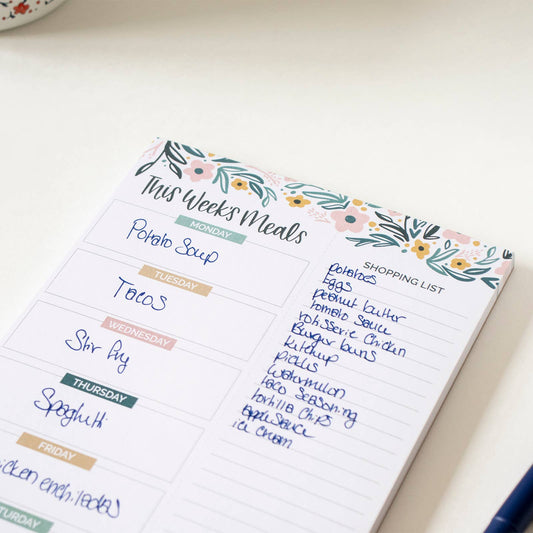 This Week's Meals
MONDAY
Potato Soup
TUESDAY
Tacos
WEDNESDAY
Stir fry
THURSDAY
Spaghetti
FRIDAY
icken enchiladas
TURDAY
SHOPPING LIST
potatoes
Eggs
peanut butter
tomato sauce
rotisserie chicken
Burger buns
ketchup
pickles
watermelon
taco seasoning
tortilla chips
applesauce
ice cream